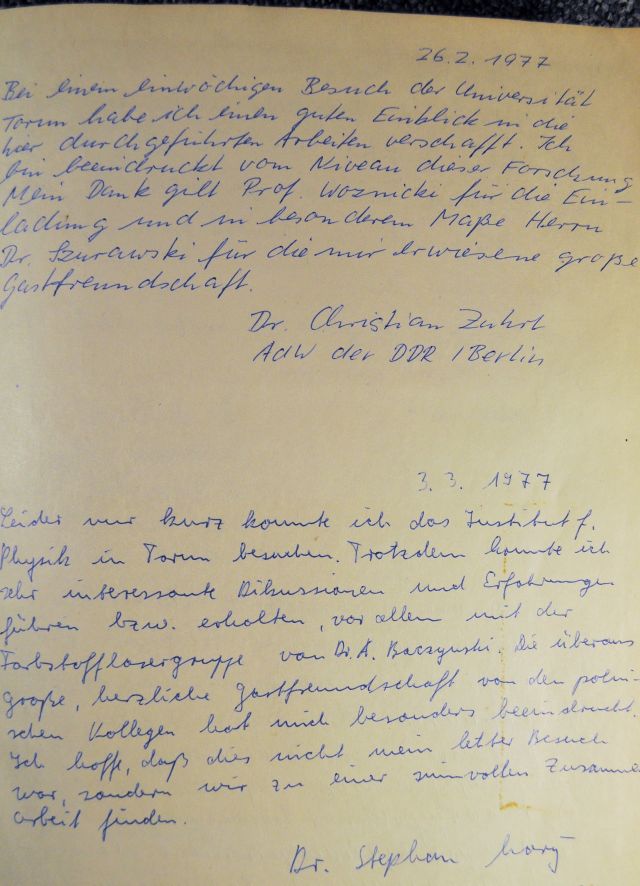 26.2.1977
Bei einem einwöchigen Besuch der Universität
Torun habe ich einen guten Einblick in die
hier durchgeführten Arbeiten verschafft. Ich
bin beeindruckt vom Niveau dieser Forschung
Mein Dank gilt Prof. Woznicki für die Ein-
ladung und in besonderem Maße Herrn
Dr. Szurawski für die mir erwiesene große
Gastfreundschaft.
Dr. Christian Zuhrt
AdW der DDR / Berlin
3.3.1977
Leider nur kurz konnte ich das Institut f.
Physik in Torun besuchen. Trotzdem konnte ich
sehr interessante Dikussionen und Erfahrungen
führen bzw. erhalten, vor allem mit der
Farbstofflasergruppe von Dr. A. Baczynski. Die überaus
große, herzliche Gastfreundschaft von den polni-
schen Kollegen hat mich besonders beeindruckt.
Ich hoffe, daß dies nicht mein letzter Besuch
war, sondern wir zu einer sinnvollen Zusammen
arbeit finden.
Dr. Stephan